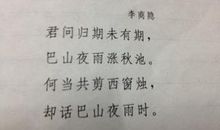 李商隐
君问归期未有期，
巴山夜雨涨秋池。
何当共剪西窗烛，
却话巴山夜雨时。